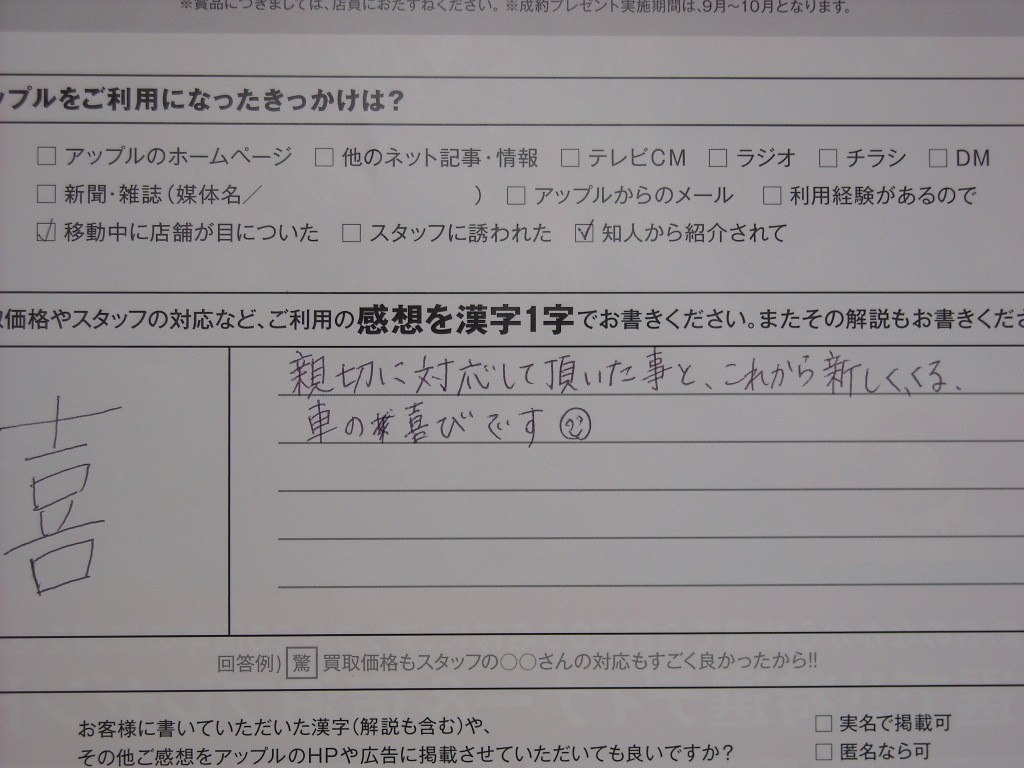 ※賞品につきましては、店員におたずねください。※成約プレゼント実施期間は、9月〜10月となります。
ップルをご利用になったきっかけは?
□ アップルのホームページ □ 他のネット記事・情報 □ テレビCM □ ラジオ □ チラシ □ DM
□ 新聞・雑誌(媒体名/ ) □ アップルからのメール □ 利用経験があるので
☑ 移動中に店舗が目についた □ スタッフに誘われた ☑ 知人から紹介されて
取価格やスタッフの対応など、ご利用の感想を漢字1字でお書きください。またその解説もお書きくださ
喜
親切に対応して頂いた事と、これから新しく、くる、
車の喜びです
回答例) 驚 買取価格もスタッフの○○さんの対応もすごく良かったから!!
お客様に書いていただいた漢字(解説も含む)や、
その他ご感想をアップルのHPや広告に掲載させていただいても良いですか?
□ 実名で掲載可
□ 匿名なら可